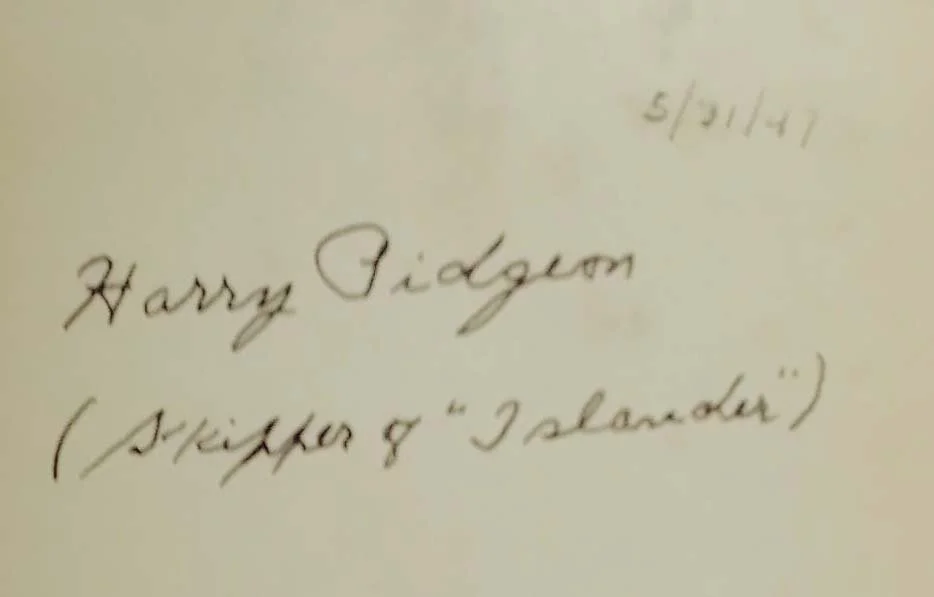 5/21/47
Harry Pidgeon
(Skipper of "Islander")